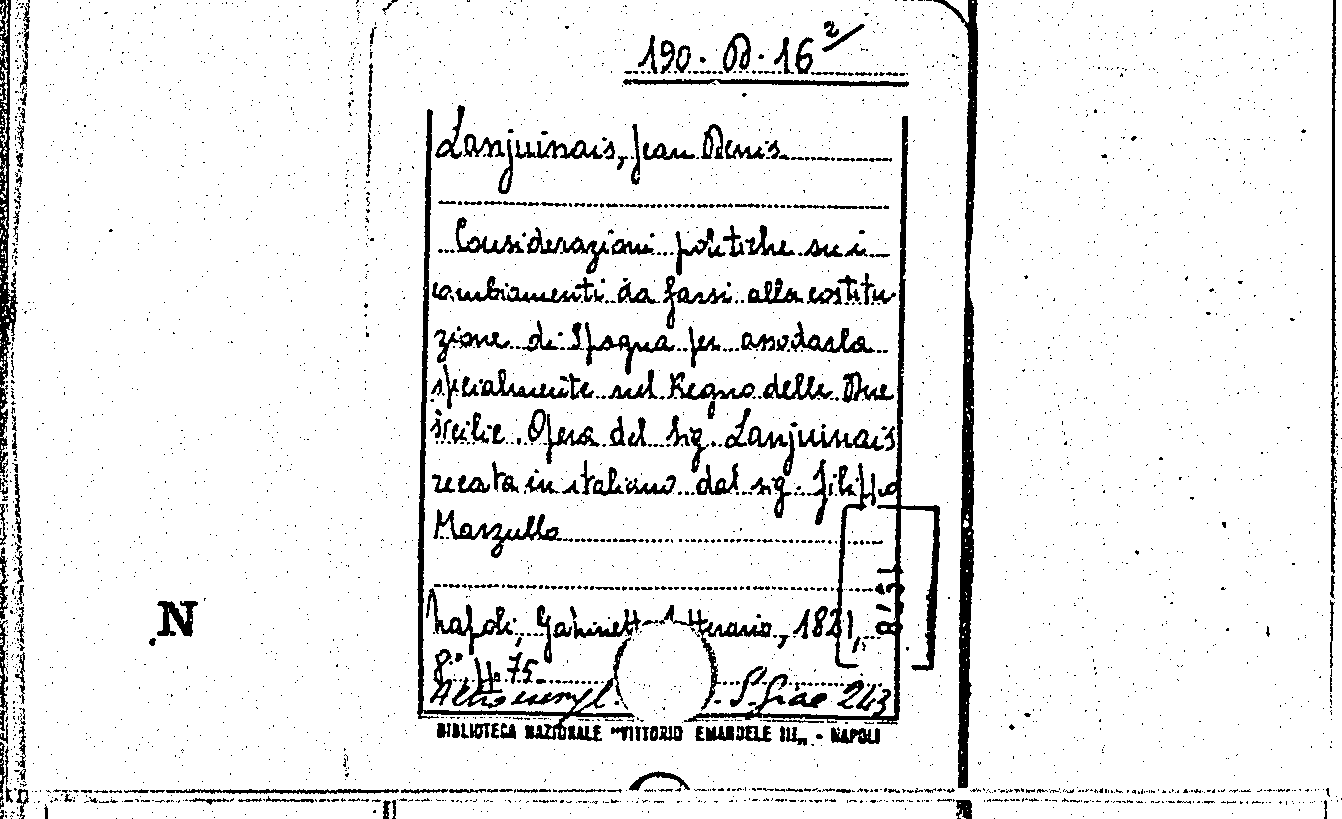 190. D. 16²/
Lanjuinais, Jean Denis
Considerazioni politiche su i
cambiamenti da farsi alla costitu-
zione di Spagna per assodarla
specialmente nel Regno delle Due
Sicilie. Opera del sig. Lanjuinais
recata in italiano dal sig. Filippo
Marzullo
Napoli, Gabinetto Letterario, 1821,
8° pp. 75.
Altro esempl. S. Giac 243
8131
N
BIBLIOTECA NAZIONALE "VITTORIO EMANUELE III„ - NAPOLI